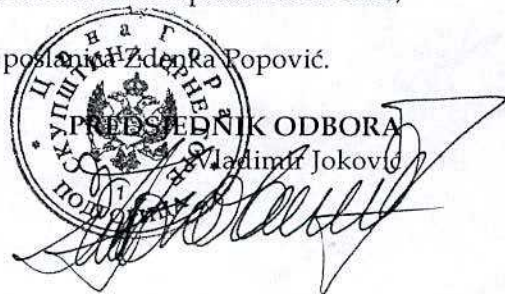 poslanica Zdenka Popović.
PREDSJEDNIK ODBORA
Vladimir Joković
Црна Гора
СКУПШТИНА ЦРНЕ ГОРЕ
1
ПОДГОРИЦА